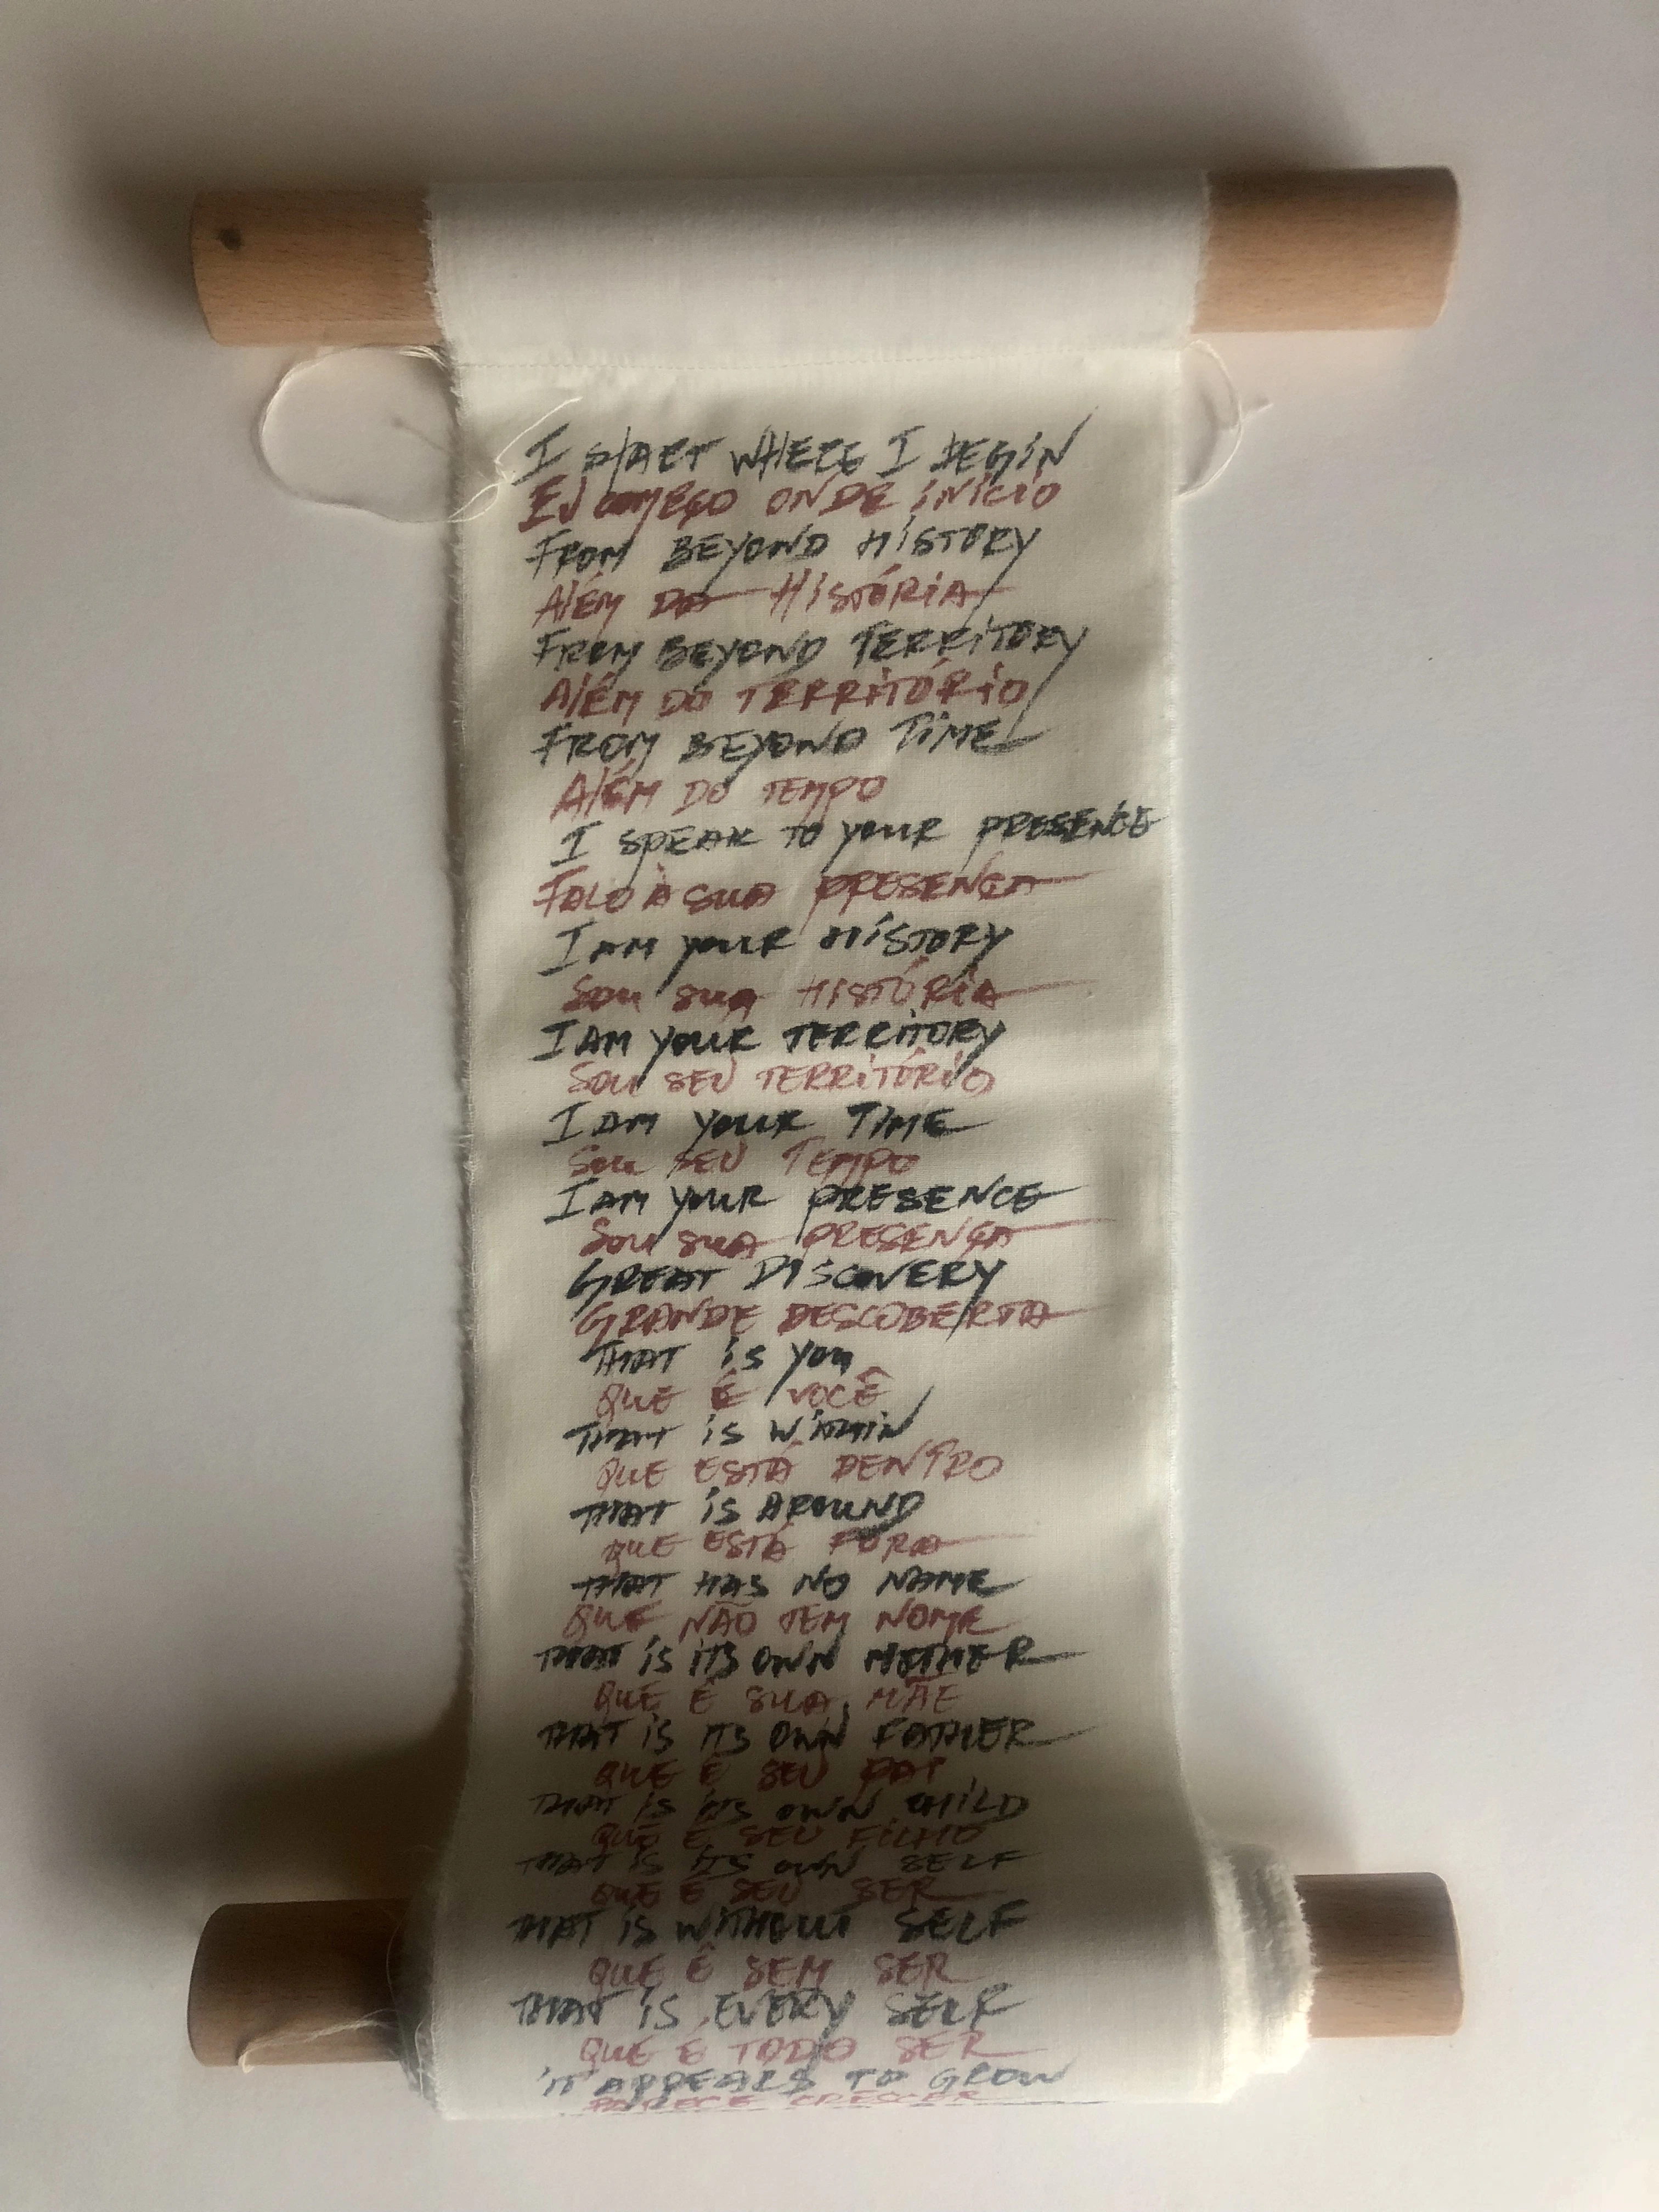 I START WHERE I BEGIN
EU COMEÇO ONDE INÍCIO
FROM BEYOND HISTORY
ALÉM DA HISTÓRIA
FROM BEYOND TERRITORY
ALÉM DO TERRITÓRIO
FROM BEYOND TIME
ALÉM DO TEMPO
I SPEAK TO YOUR PRESENCE
FALO À SUA PRESENÇA
I AM YOUR HISTORY
SOU SUA HISTÓRIA
I AM YOUR TERRITORY
SOU SEU TERRITÓRIO
I AM YOUR TIME
SOU SEU TEMPO
I AM YOUR PRESENCE
SOU SUA PRESENÇA
GREAT DISCOVERY
GRANDE DESCOBERTA
THAT IS YOU
QUE É VOCÊ
THAT IS WITHIN
QUE ESTÁ DENTRO
THAT IS AROUND
QUE ESTÁ FORA
THAT HAS NO NAME
QUE NÃO TEM NOME
THAT IS ITS OWN MOTHER
QUE É SUA MÃE
THAT IS ITS OWN FATHER
QUE É SEU PAI
THAT IS ITS OWN CHILD
QUE É SEU FILHO
THAT IS ITS OWN SELF
QUE É SEU SER
THAT IS WITHOUT SELF
QUE É SEM SER
THAT IS EVERY SELF
QUE É TODO SER
IT APPEARS TO GROW
PARECE CRESCER